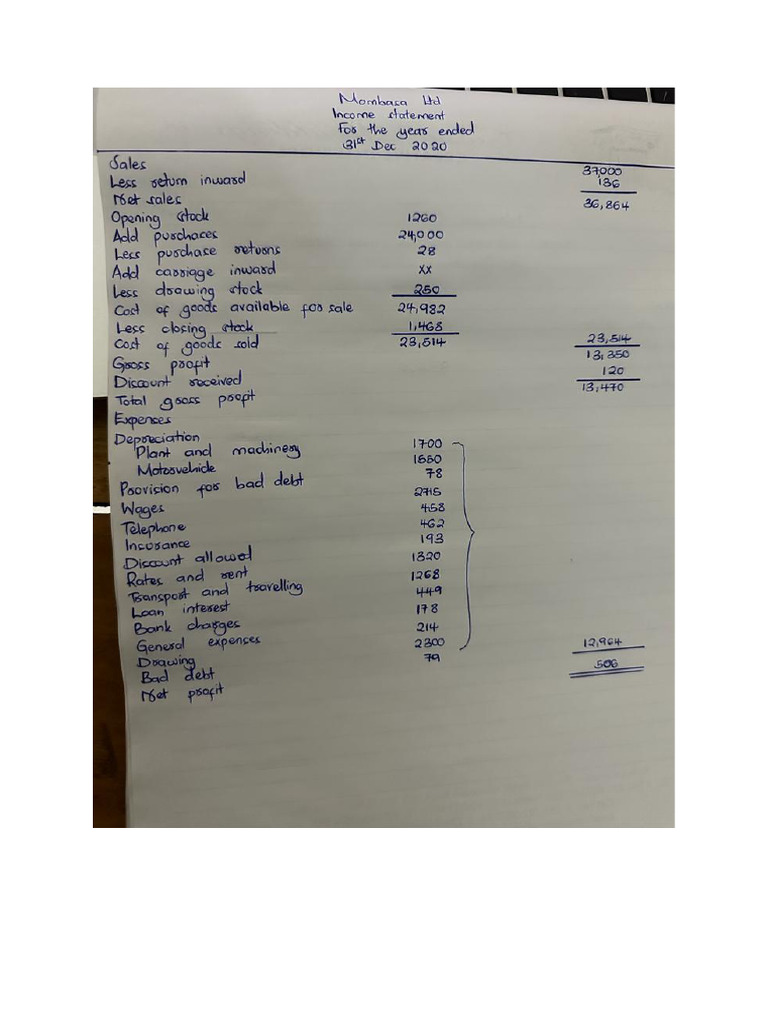 Mombasa Ltd
Income statement
For the year ended
31st Dec 2020
Sales 37000
Less return inward 136
Net sales 36,864
Opening stock 1260
Add purchaces 24,000
Less purchase returns 28
Add carriage inward xx
Less drawing stock 250
Cost of goods available for sale 24,982
Less closing stock 1,468
Cost of goods sold 23,514 23,514
Gross profit 13,350
Discount received 120
Total gross profit 13,470
Expenses
Depreciation
Plant and machinery 1700
Motorvehicle 1550
Provision for bad debt 78
Wages 2715
Telephone 458
Insurance 462
Discount allowed 193
Rates and rent 1320
Transport and travelling 1268
Loan interest 449
Bank charges 178
General expenses 214
Drawing 2300
Bad debt 79 12,964
Net profit 506